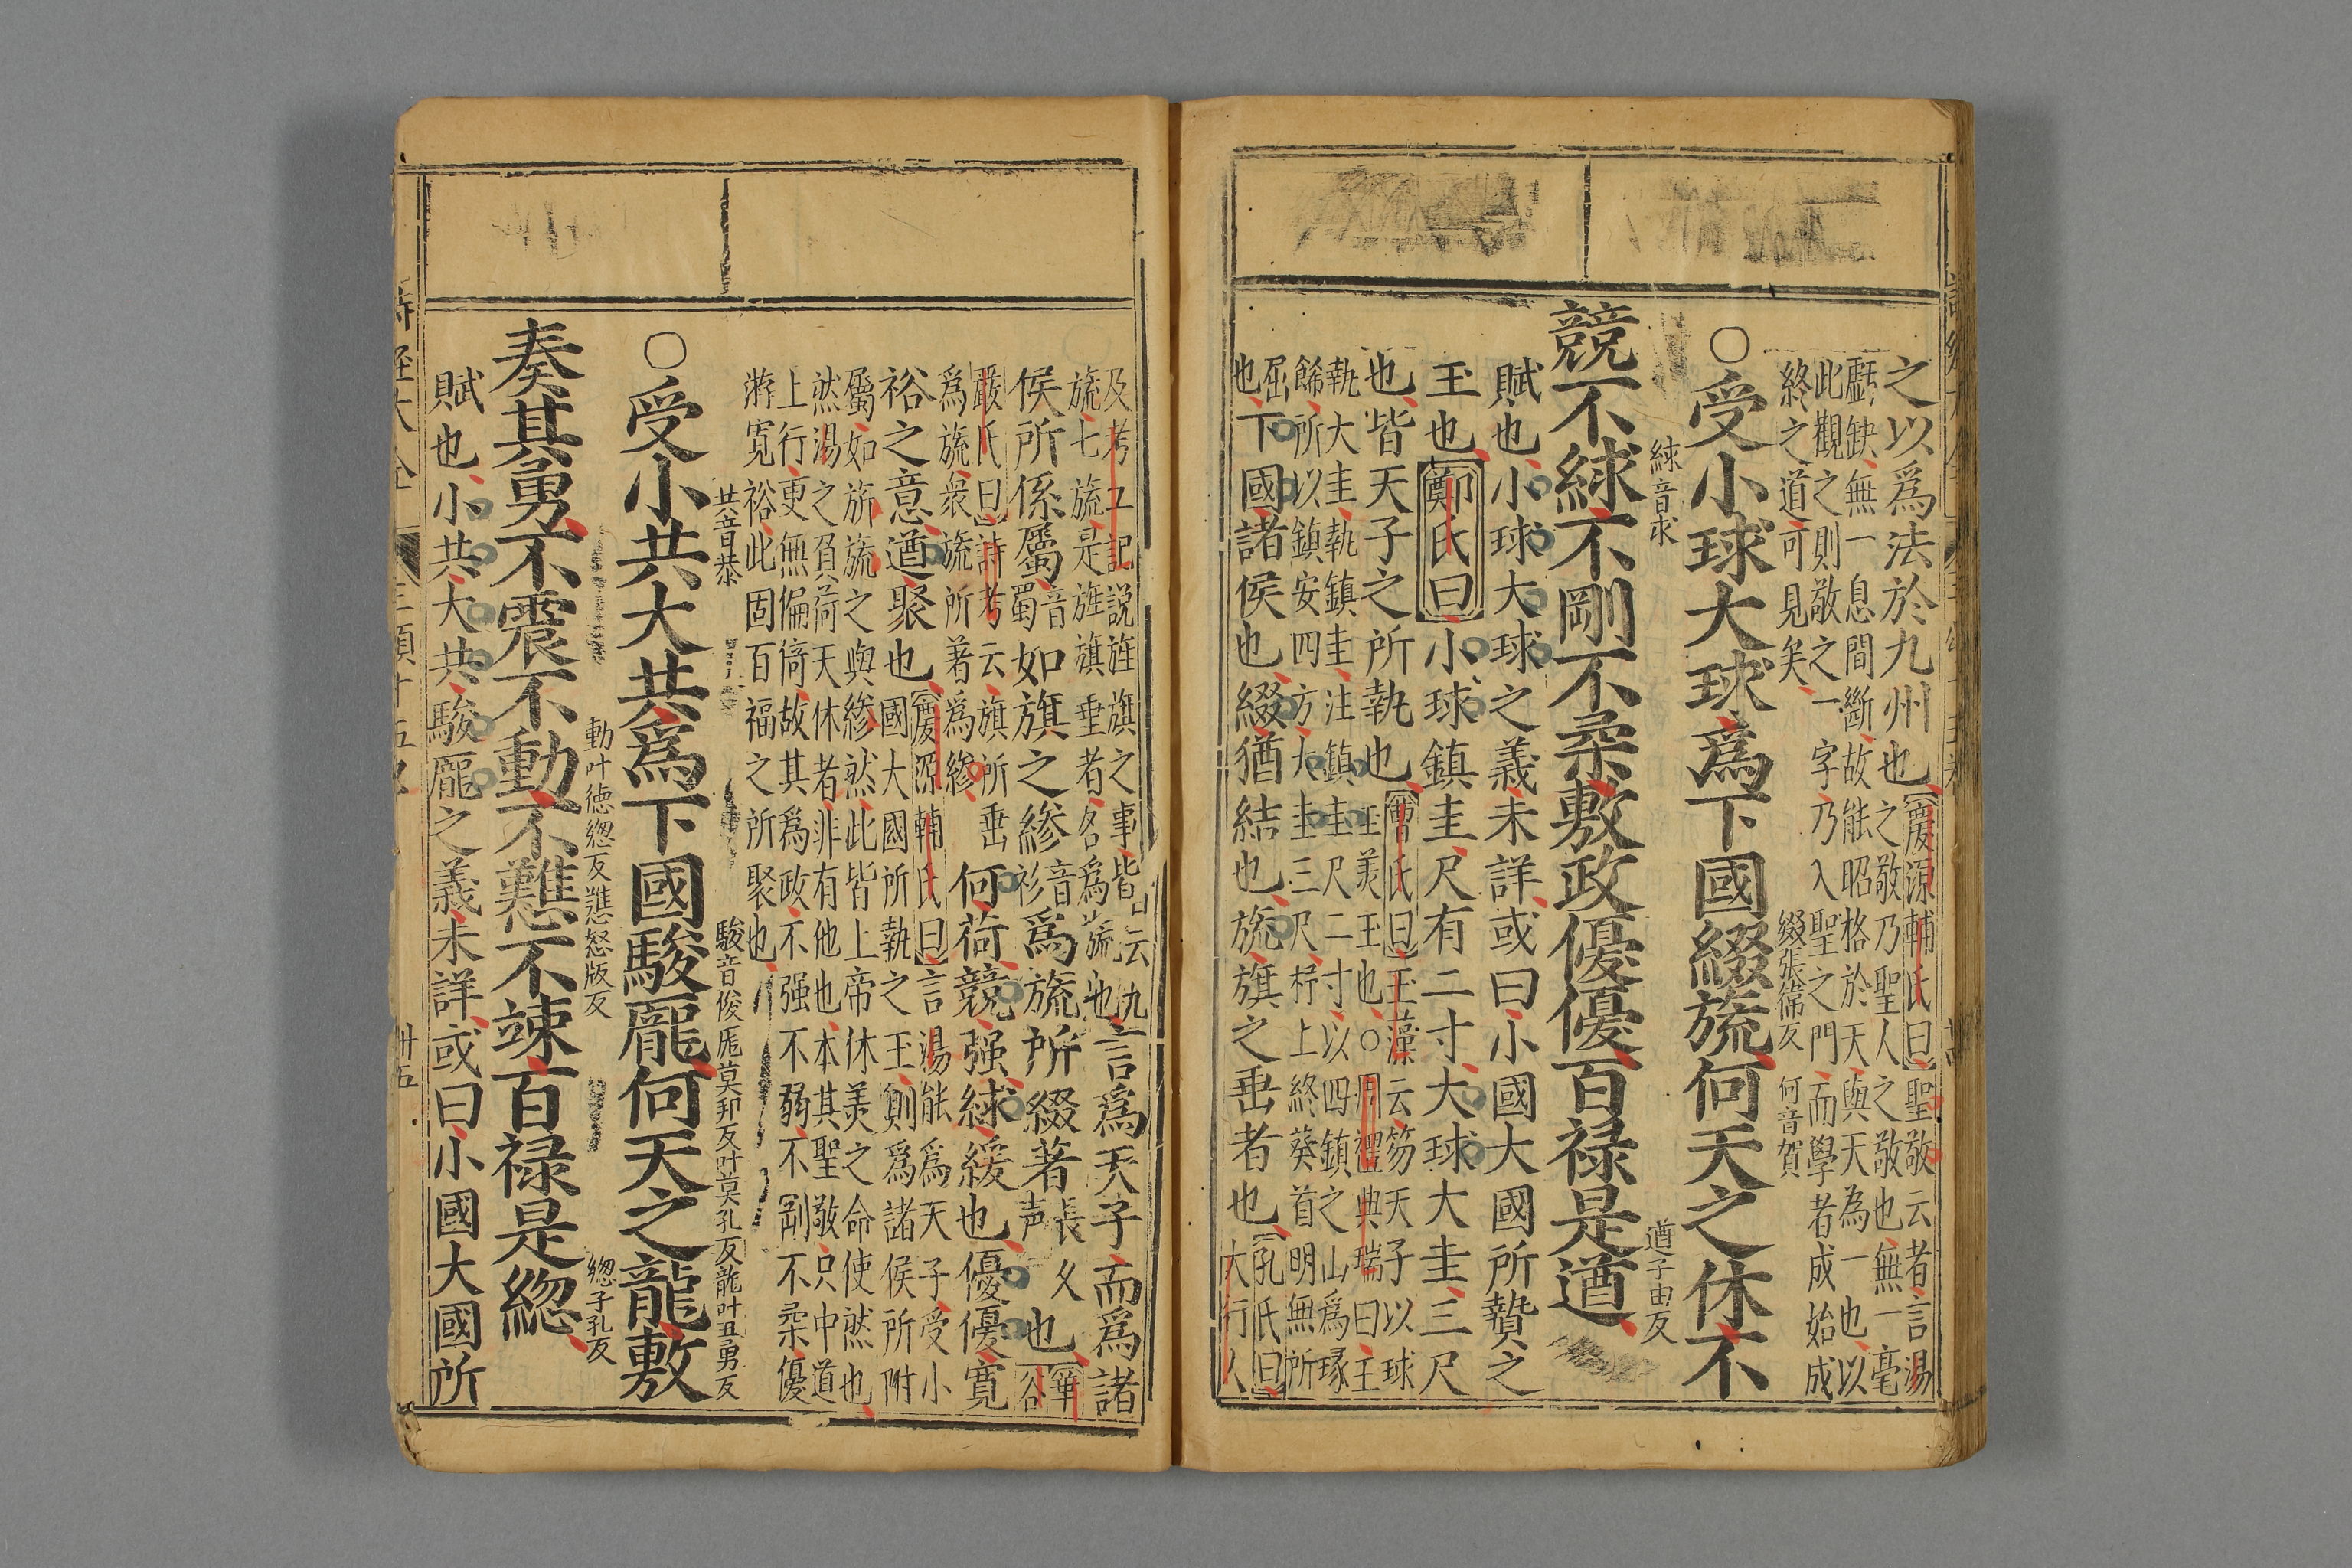 之以爲法於九州也慶源輔氏曰聖敬云者言湯
之敬乃聖人之敬也無一毫
虧缺無一息間斷故能昭格於天與天為一也以
此觀之則敬之一字乃入聖之門而學者成始成
終之道可見矣
○受小球大球爲下國綴旒何天之休不
綴張衛反
何音賀
競不絿不剛不柔敷政優優百祿是遒
絿音求
遒子由反
賦也小球大球之義未詳或曰小國大國所贄之
玉也鄭氏曰小球鎮圭尺有二寸大球大圭三尺
也皆天子之所執也曹氏曰玉藻云笏天子以球
玉美玉也○周禮典瑞曰王
執大圭執鎮圭注鎮圭尺二寸以四鎮之山爲瑑
餙所以鎮安四方大圭三尺杼上終葵首明無所
屈
也下國諸侯也綴猶結也旒旗之垂者也孔氏曰
大行人
及考工記說旌旗之事皆云九
旒七旒是旌旗垂者名爲旒也
言爲天子而爲諸
侯所係屬音蜀如旗之縿音衫爲旒所綴著長入声也華谷
嚴氏曰詩考云旗所垂
爲旒衆旒所著為縿
何荷競强絿緩也優優寬
裕之意遒聚也慶源輔氏曰言湯能爲天子受小
國大國所執之玉則爲諸侯所附
屬如旂旒之與縿然此皆上帝休美之命使然也
然湯之負荷天休者非有他也本其聖敬只中道
上行更無偏倚故其爲政不强不弱不剛不柔優
游寬裕此固百福之所聚也
○受小共大共爲下國駿厖何天之龍敷
共音恭
駿音俊厖莫邦反叶莫孔反龍叶丑勇反
奏其勇不震不動不戁不竦百祿是總
動叶徳總反戁怒版反
總子孔反
賦也小共大共駿厖之義未詳或曰小國大國所
卅五